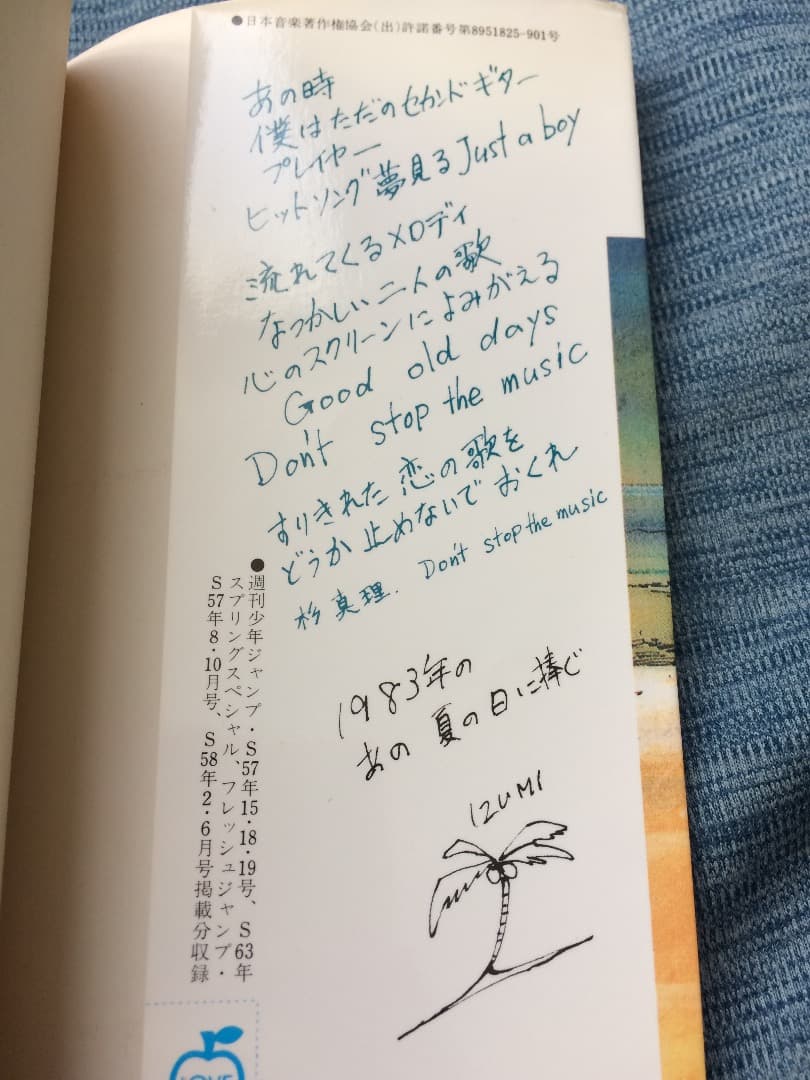 ●日本音楽著作権協会(出)許諾番号第8951825-901号
あの時
僕はただのセカンドギター
プレイヤー
ヒットソング夢見るJust a boy
流れてくるメロディ
なつかしい二人の歌
心のスクリーンによみがえる
Good old days
Don't stop the music
すりきれた恋の歌を
どうか止めないでおくれ
杉真理. Don't stop the music
1983年の
あの夏の日に捧ぐ
IZUMI
●週刊少年ジャンプ・S57年15・18・19号、S63年
スプリングスペシャル、フレッシュジャンプ・
S57年8・10月号、S58年2・6月号掲載分収録
LOVE